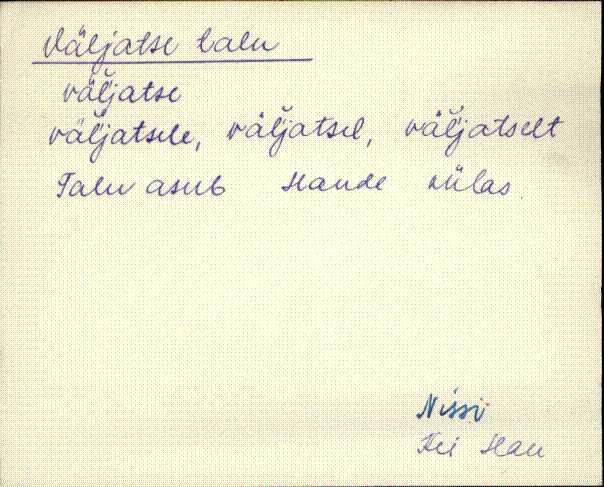 Väljatse talu
väľjatse
väľjatsele, väľjatsel, väľjatselt
Talu asub Haude külas.
Nissi